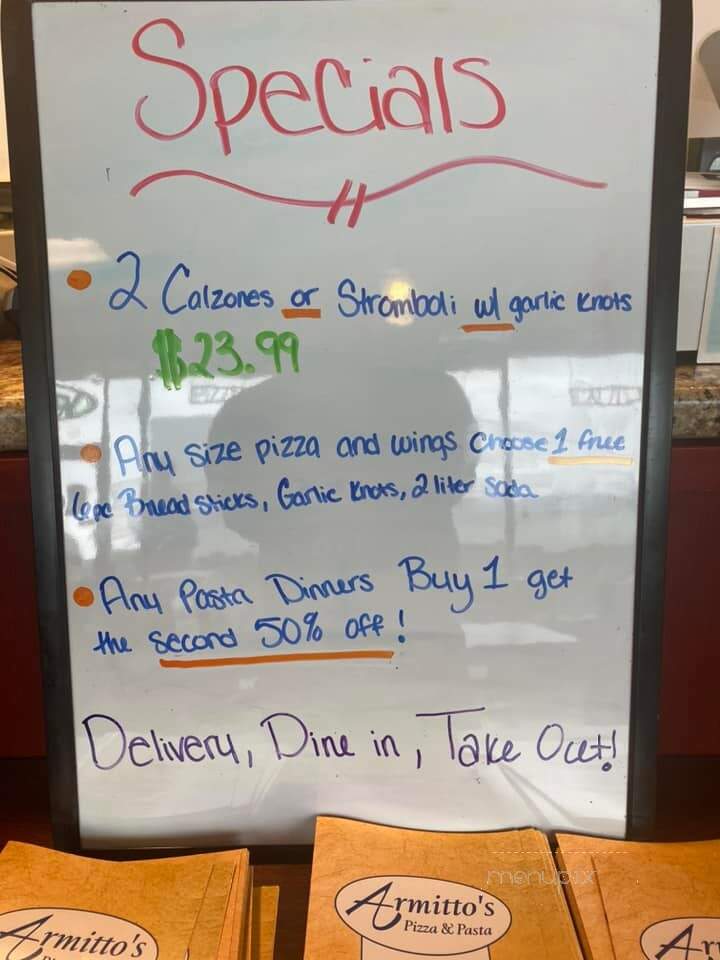 Specials
• 2 Calzones or Stromboli w/ garlic knots
$23.99
• Any size pizza and wings choose 1 free
6pc Bread sticks, Garlic knots, 2 liter soda
• Any Pasta Dinners Buy 1 get
the second 50% off!
Delivery, Dine in, Take Out!
menupix
Armitto's
Pizza & Pasta
rmitto's
Ar